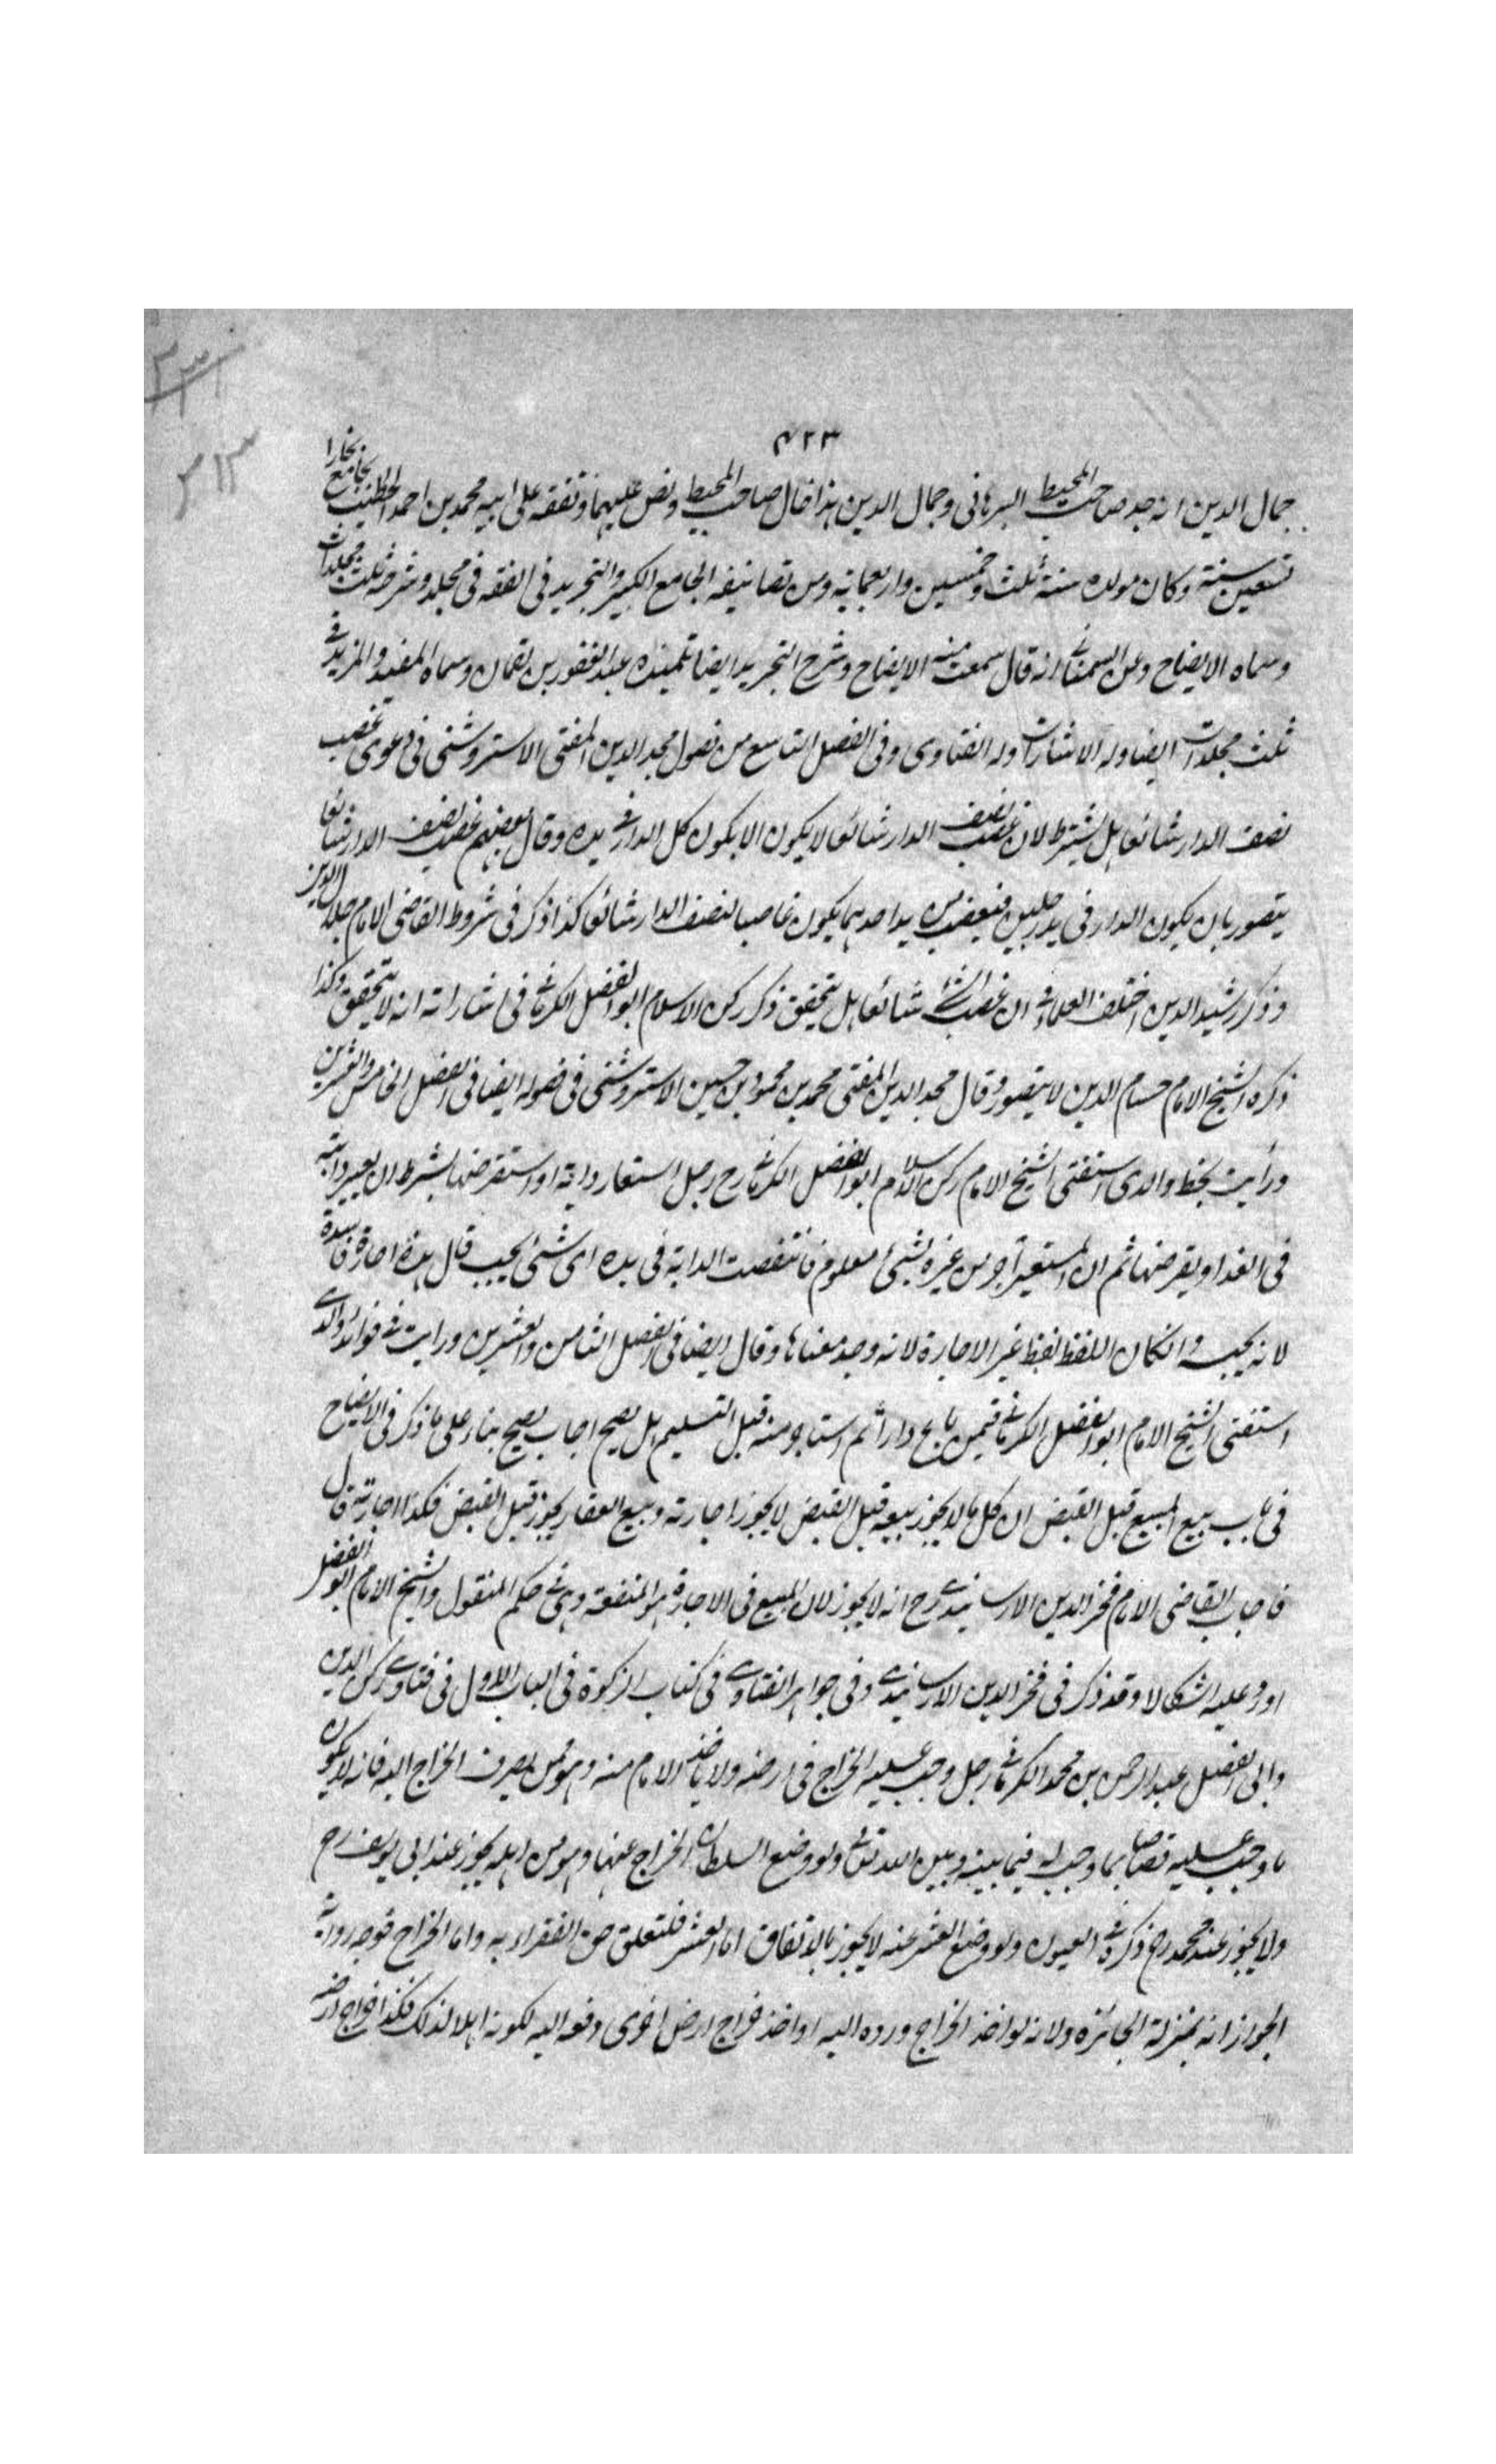 ٤٢٣
جمال الدين انه جد صاحب المحيط البرهانى وجمال الدين هذا خال صاحب المحيط ونص عليهما وتفقه على ابيه محمد بن احمد الخطيب بجامع بخارا
تسعين سنة وكان مولده سنة ثلث وخمسين واربعماية ومن تصانيفه الجامع الكبير والتجريد فى الفقه فى مجلد وشرحه ثلث مجلدات
وسماه الايضاح وعن السمعانى انه قال سمعت منه الايضاح وشرح التجريد ايضا تلميذه عبد الغفور بن لقمان وسماه المفيد والمزيد فى
ثلث مجلدات ايضا وله الاشارات وله الفتاوى وفى الفصل التاسع من فصول مجد الدين المفتى الاستروشنى فى دعوى غصب
نصف الدار شائعا هل يشترط لان غصب نصف الدار شائعا لا يكون الا بكون كل الدار فى يده وقال بعضهم غصب نصف الدار شائعا
يتصور بان يكون الدار فى يد رجلين فيغصب من يد احدهما يكون غاصبا لنصف الدار شائعا كذا ذكر فى شروط القاضى الامام جلال الدين
وذكر رشيد الدين اختلف العلماء فى ان غصب الشئ شائعا هل يتحقق ذكر ركن الاسلام ابو الفضل الكرمانى فى اشاراته انه لا يتحقق وكذا
ذكره الشيخ الامام حسام الدين لا يتصور وقال مجد الدين المفتى محمد بن محمود بن حسين الاستروشنى فى فصوله ايضا فى الفصل الخامس والعشرين
ورأيت بخط والدى استفتى الشيخ الامام ركن الاسلام ابو الفضل الكرمانى رح رجل استعار دابة او استقرضها بشرط ان يعير دابته
فى الغد او يقرضها ثم ان المستعير آجر من غيره بشئ معلوم فانتقصت الدابة فى يده اى شئ يجب قال هذه اجارة فاسدة
لانه يجب وان كان اللفظ لفظ غير الاجارة لانه وجد معناها وقال ايضا فى الفصل الثامن والعشرين ورايت فى فوائد والدى
استفتى الشيخ الامام ابو الفضل الكرمانى فيمن باع دارا ثم استاجر منه قبل التسليم هل يصح اجاب يصح بناء على ما ذكر فى الايضاح
فى باب بيع المبيع قبل القبض ان كل ما لا يجوز بيعه قبل القبض لا يجوز اجارته وبيع العقار يجوز قبل القبض فكذا اجارته قال
فاجاب القاضى الامام فخر الدين الارسابندى رح انه لا يجوز لان المبيع فى الاجارة هو المنفعة وهى فى حكم المنقول والشيخ الامام ابو الفضل
اورد عليه اشكالا وقد ذكر فى فخر الدين الارسابندى وفى جواهر الفتاوى فى كتاب الزكوة فى الباب الاول فى فتاوى ركن الدين
وابى الفضل عبد الرحمن بن محمد الكرمانى رجل وجب عليه الخراج فى ارضه ولا ياخذ الامام منه وهو ممن يصرف الخراج اليه فانه لا يكون
ما وجب عليه قصاصا بما وجب له فيما بينه وبين الله تعالى ولو وضع السلطان الخراج عنها وهو من اهله يجوز عند ابى يوسف رح
ولا يجوز عند محمد رح ذكره فى العيون ولو وضع العشر عنه لا يجوز بالاتفاق اما العشر فلتعلق حق الفقراء به واما الخراج فوجه رواية
الجواز انه بمنزلة الجائزة ولانه لو اخذ الخراج ورده اليه او اخذ خراج ارض اخرى دفعه اليه لكونه اهلا لذلك فكذا خراج ارضه